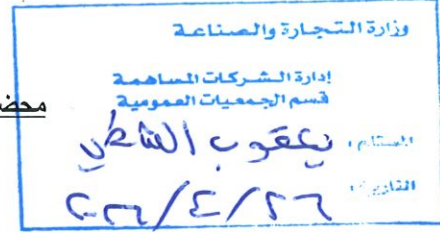 وزارة التجارة والصناعة
إدارة الشركات المساهمة
قسم الجمعيات العمومية
محضـ
المستلم: يعقوب الشاطي
التاريخ: ٢٠٢٦/٤/٢٦